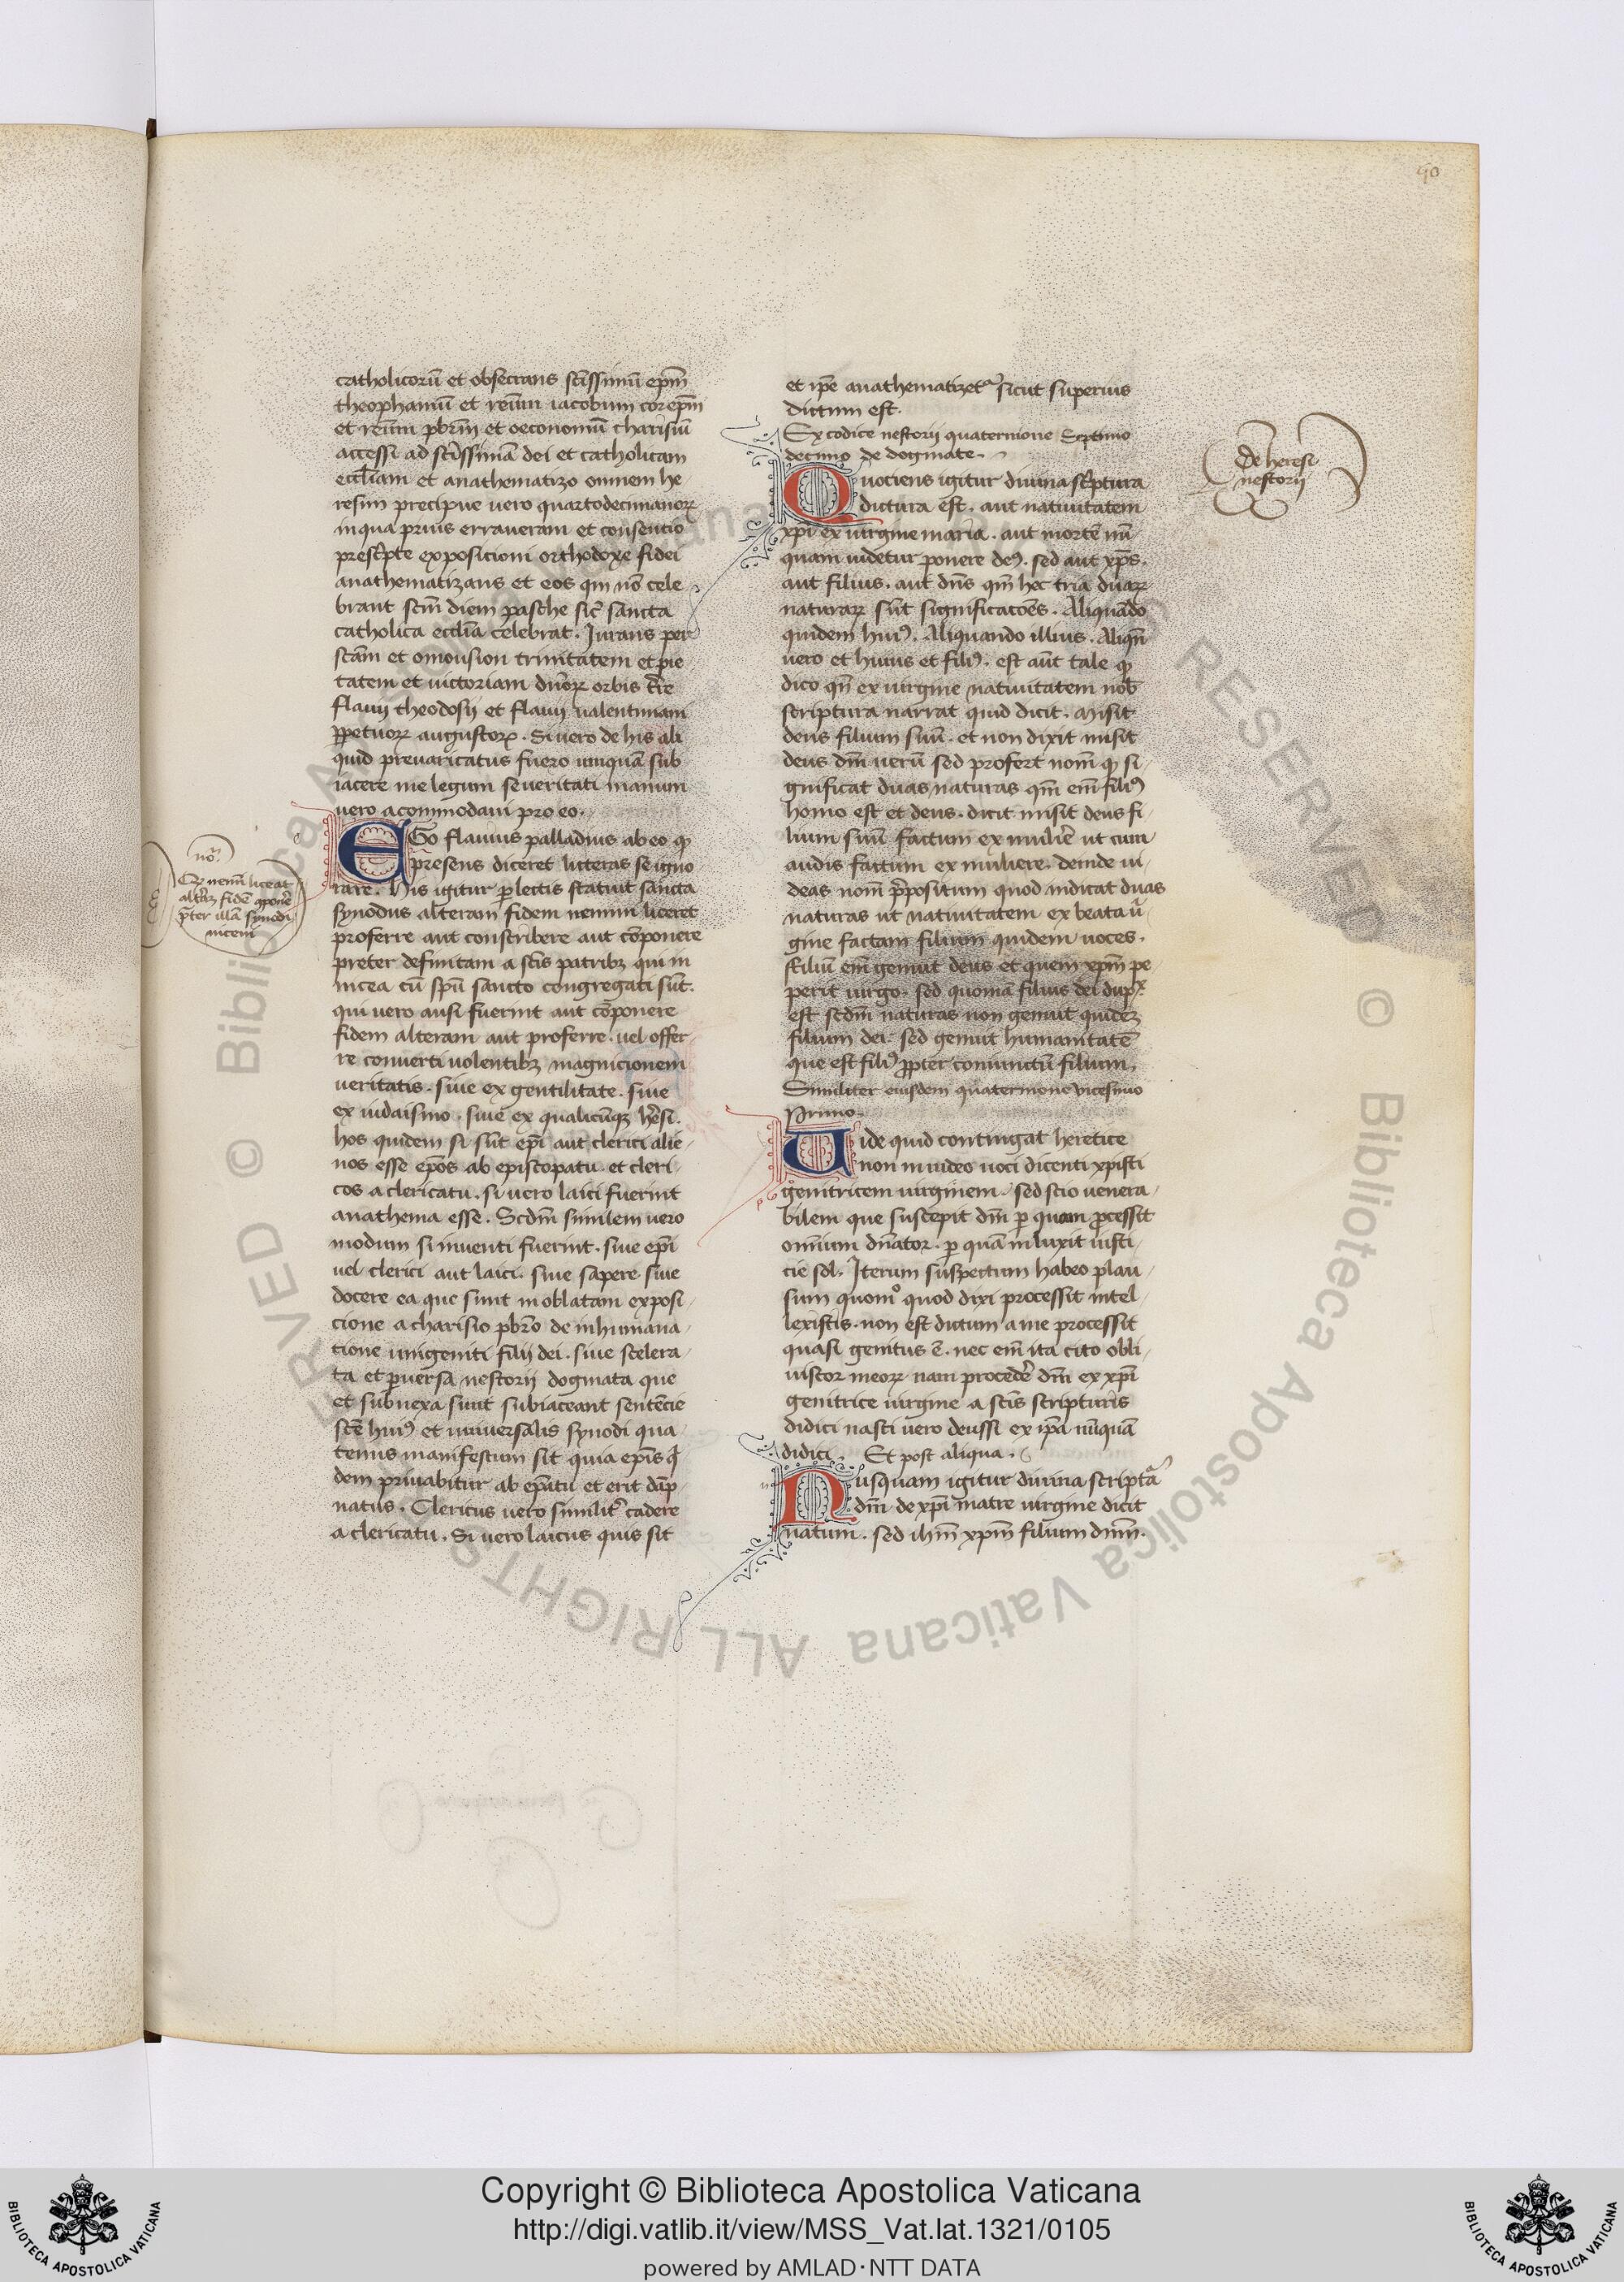 90
catholicorū et obsecrans sc̄issimū ep̄m
theophaniū et reūm iacobum corep̄m
et reūm pb̄rm̄ et oeconomū charisiū
accessi ad sc̄issimā dei et catholicam
eccl̄iam et anathematizo omnem he
resim precipue uero quartodecimanoꝝ
inqua prius erraueram et consentio
prescͥpte exposicioni orthodoxe fidei
anathematizans et eos qui nō cele
brant scm̄ diem pasche sic̄ sancta
catholica eccl̄ia celebrat. Iurans per
sc̄am et omousion trinitatem et pie
tatem et uictoriam dn̄oꝝ orbis t̄re
flauij theodosij et flauij ualentiniani
ꝑpetuoꝝ augustoꝝ. Si uero de his ali
quid preuaricatus fuero unquā sub
iacere me legum seueritati manum
uero acommodaui pro eo.
EGo flauius palladius ab eo qꝫ
presens diceret litteras se igno
rare. His igitur ꝑlectis statuit sancta
synodus alteram fidem nemini liceret
proferre aut conscribere aut cōponere
preter definitam a sc̄is patribꝫ qui in
nicea cū spū sancto congregati sūt.
qui uero ausi fuerint aut cōponere
fidem alteram aut proferre. uel offer
re conuerti uolentibꝫ magnicionem
ueritatis. siue ex gentilitate. siue
ex iudaismo. siue ex qualicūqꝫ h̄esi.
hos quidem si sūt ep̄i aut clerici alie
nos esse ep̄os ab episcopatu et cleri
cos a clericatu. si uero laici fuerint
anathema esse. Scdm̄ similem uero
modum si inuenti fuerint. siue ep̄i
uel clerici aut laici. siue sapere siue
docere ea que sunt in oblatam exposi
cione a charisio pb̄ro de inhumana
tione unigeniti filij dei. siue scelera
ta et ꝑuersa nestorij dogmata que
et subnexa sunt subiaceant sentēcie
sc̄e huiꝰ et uniuersalis synodi qua
tenus manifestum sit quia ep̄is qͥ
dem priuabitur ab ep̄atu et erit dāp
natus. Clericus uero similit̄ cadere
a clericatu. Si uero laicus quis sit
nō.
Qꝫ nemī liceat
alterā fidē ꝯponere
p̄ter illā synodi
niceni
et ip̄e anathematizet᷑ sicut superius
dictum est.
Ex codice nestorij quaternione Septimo
decimo de dogmate.
Quociens igitur diuina scͥptura
dictura est. aut natiuitatem
xp̄i ex uirgine maria. aut mortē nū
quam uidetur ponere deꝰ. sed aut xp̄s.
aut filius. aut dn̄s qm̄ hec tria duaꝝ
naturaꝝ sūt significacōes. Aliquādo
quidem huiꝰ. Aliquando illius. Aliqn̄
uero et huius et filiꝰ. est aūt tale qꝫ
dico qn̄ ex uirgine natiuitatem nob̄
scriptura narrat quid dicit. Misit
deus filium suū. et non dixit misit
deus dm̄ uerū sed profert nom̄ qꝫ si
gnificat duas naturas qm̄ em̄ filiꝰ
homo est et deus. dicit misit deus fi
lium suū factum ex mulier̄ ut cum
audis factum ex muliere. deinde ui
deas nom̄ p̄positum quod indicat duas
naturas ut natiuitatem ex beata uͥ
gine factam filium quidem uoces.
Filiū em̄ genuit deus et quem xp̄m pe
perit uirgo. sed quoniā filius dei dupͯ
est scdm̄ naturas non genuit quidēꝫ
filium dei. sed genuit humanitatē
que est filiꝰ ꝓpter coniunctū filium.
Similiter eiusdem quaternione vicesimo
Primo.
Uide quid contingat heretice
non inuideo uoci dicenti xpisti
genitricem uirginem. sed scio uenera
bilem que suscepit dm̄ ꝑ quam ꝓcessit
omnium dn̄ator. ꝑ quā inluxit iusti
cie sol. Iterum suspectum habeo plau
sum quom̊ quod dixi processit intel
lexistis. non est dictum a me processit
quasi genitus ē. nec em̄ ita cito obli
uiscor meoꝝ nam proceder̄ dm̄ ex xp̄i
genitrice uirgine a sc̄is scripturis
didici nasci uero deussi ex ip̄a nūquā
didici. Et post aliqua.
Nusquam igitur diuina scriptͣa
dm̄ de xp̄i matre uirgine dicit
natum. sed ihm̄ xp̄m filium dnm̄.
De heresi
nestorij
Copyright © Biblioteca Apostolica Vaticana
http://digi.vatlib.it/view/MSS_Vat.lat.1321/0105
powered by AMLAD·NTT DATA
BIBLIOTECA APOSTOLICA VATICANA
BIBLIOTECA APOSTOLICA VATICANA
© Biblioteca Apostolica Vaticana ALL RIGHTS RESERVED